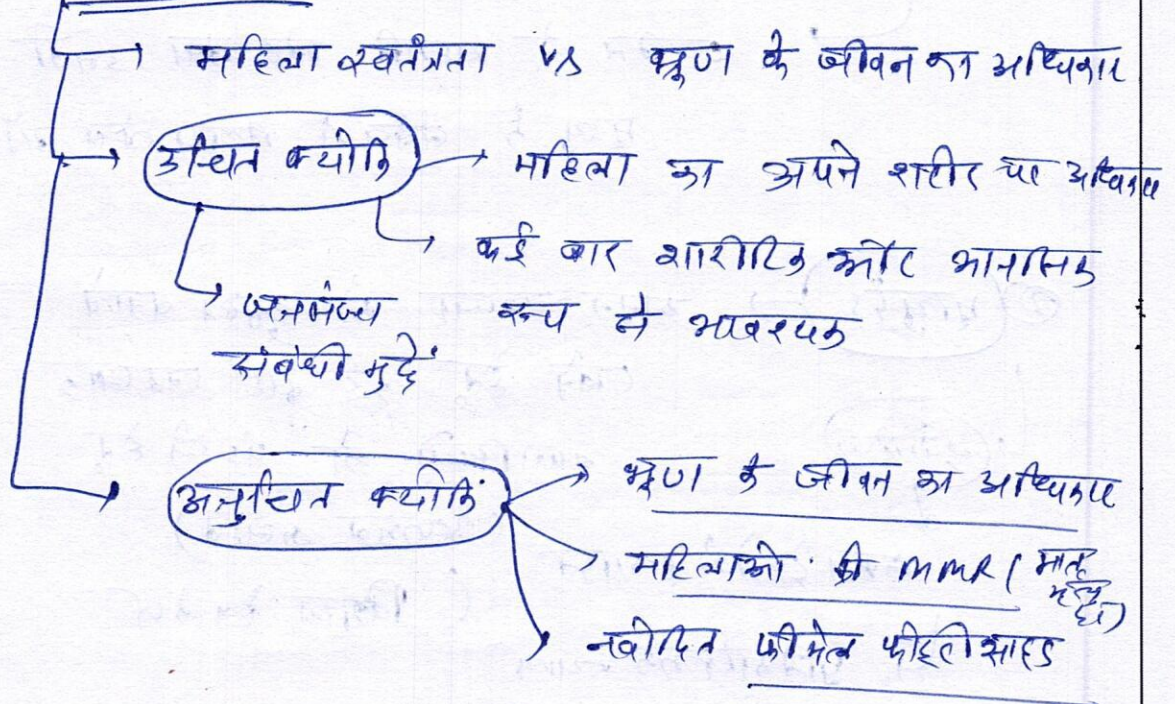 → महिला स्वतंत्रता vs भ्रूण के जीवन का अधिकार
→ उचित क्योंकि → महिला का अपने शरीर पर अधिकार
→ कई बार शारीरिक और मानसिक
रूप से आवश्यक
→ जनसंख्या
संबंधी मुद्दें
→ अनुचित क्योंकिं → भ्रूण के जीवन का अधिकार
→ महिलाओं की MMR (मातृ
मृत्यु
दर)
→ फीमेल फीटीसाइड